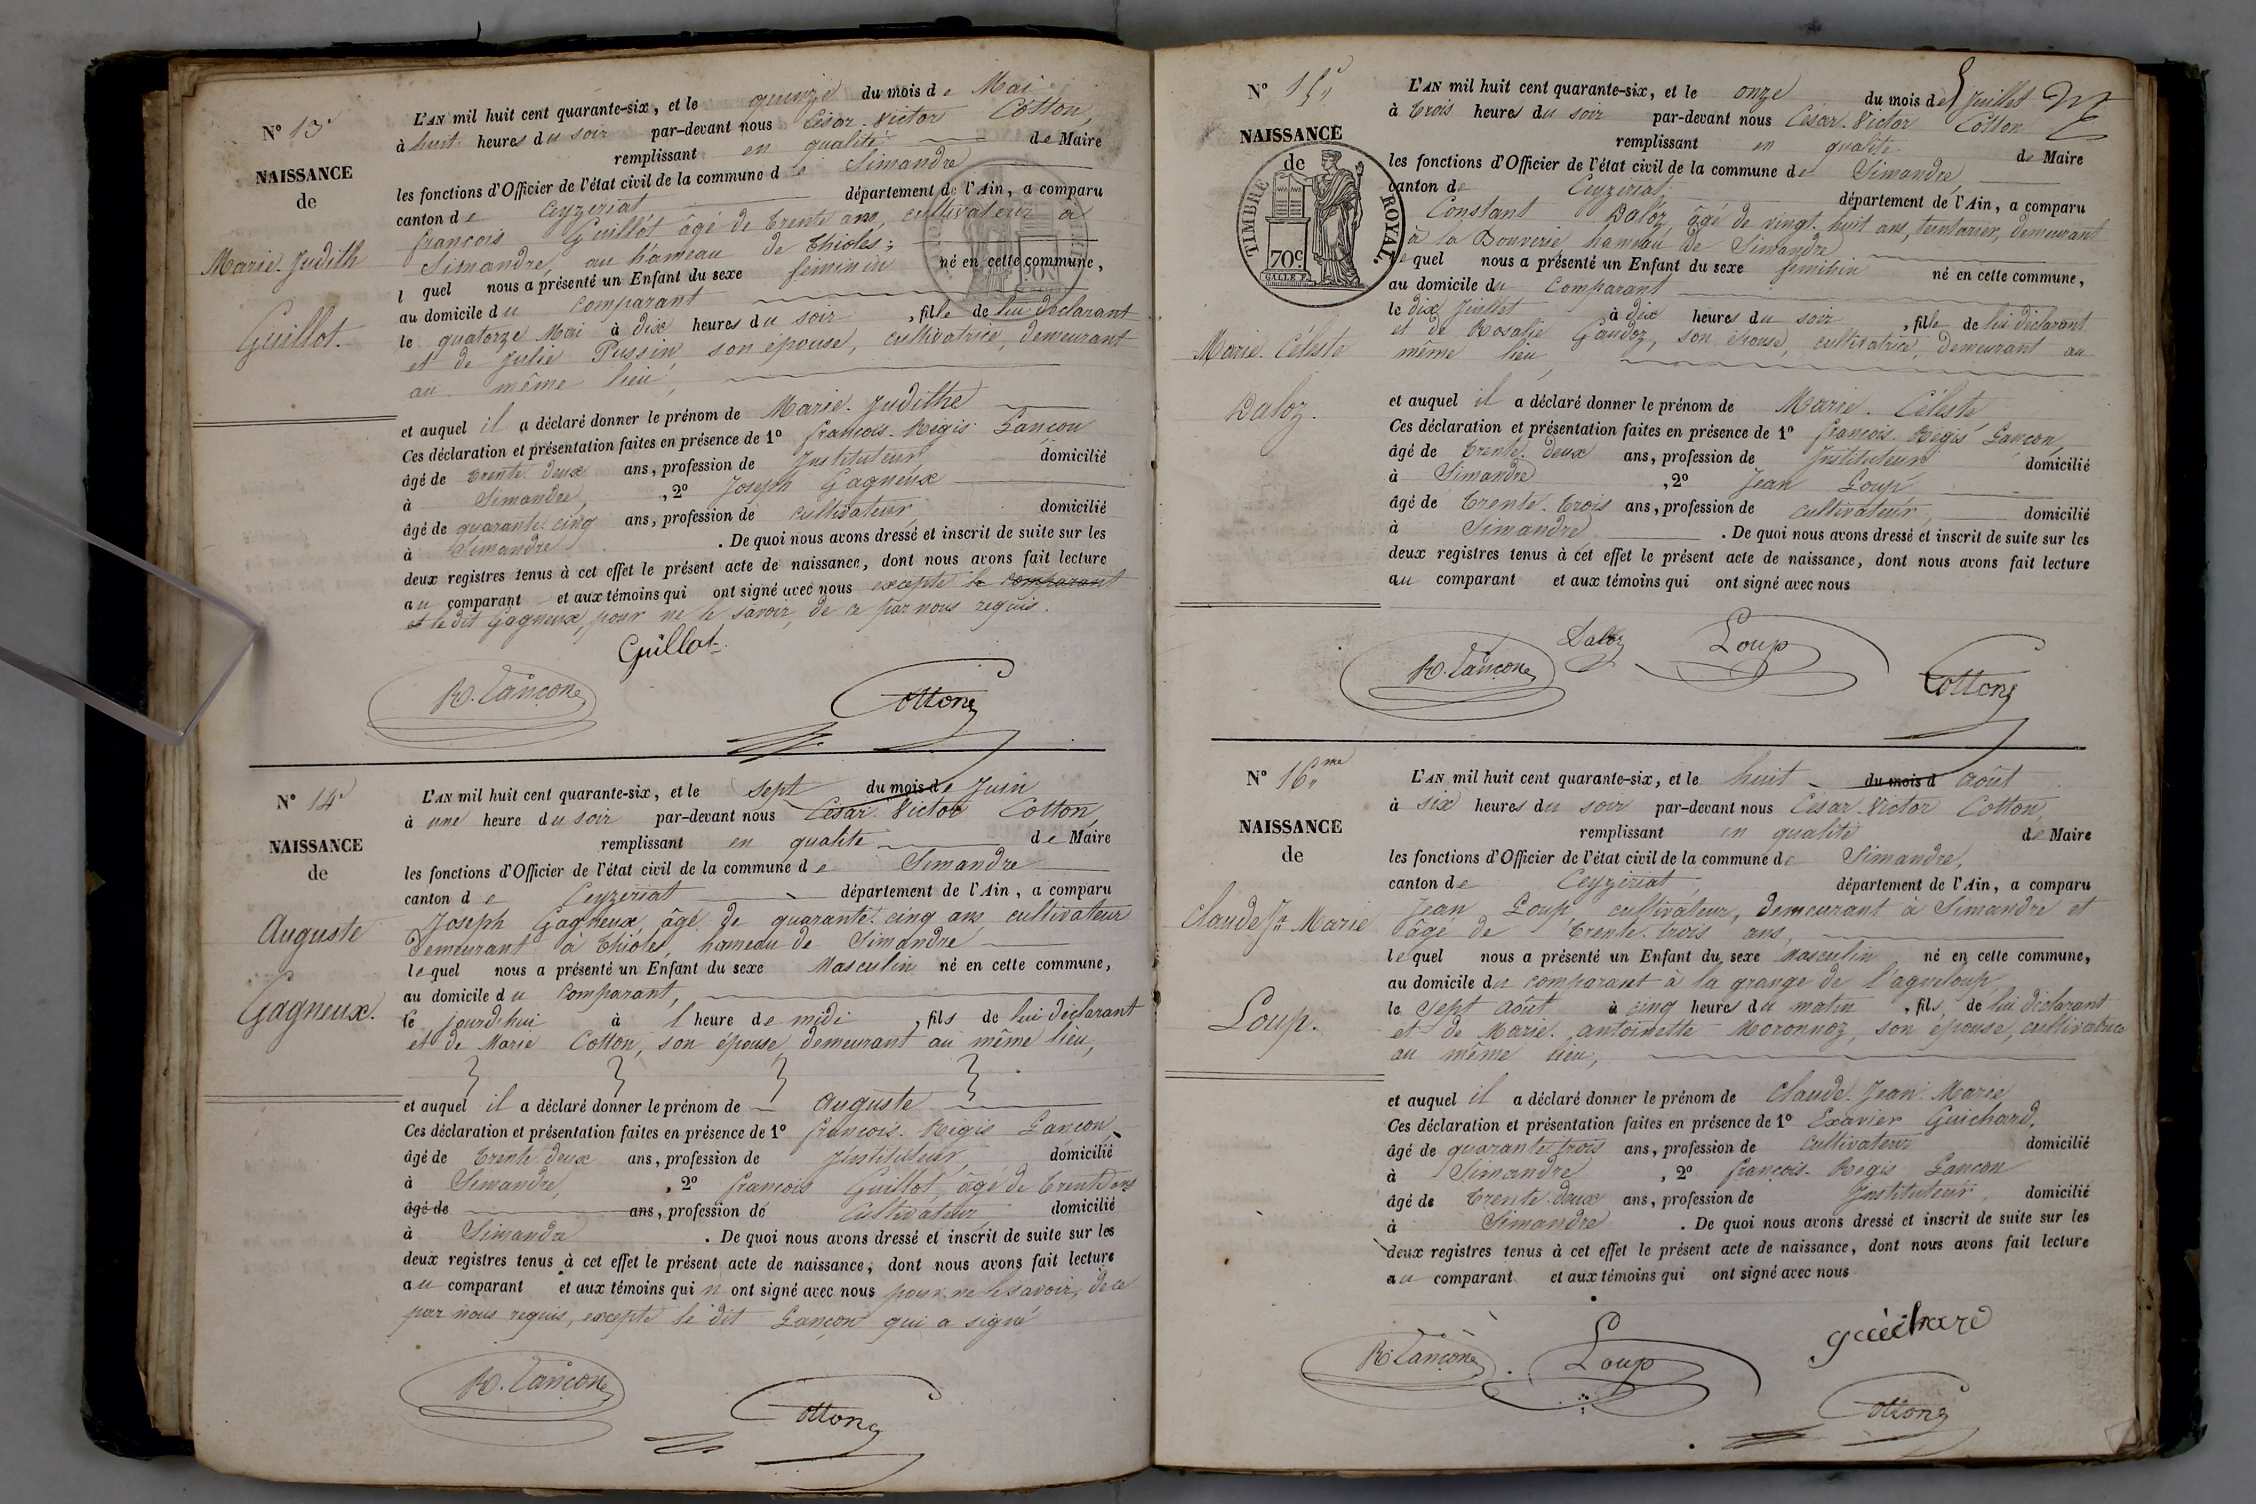 N° 13
NAISSANCE
de
Marie-Judith
Guillot.
L'AN mil huit cent quarante-six, et le quinze du mois de Mai
à huit heures du soir par-devant nous César-Victor Cotton,
remplissant en qualité de Maire
les fonctions d'Officier de l'état civil de la commune de Simandre
canton de Ceyzeriat département de l'Ain, a comparu
françois Guillot âgé de trente ans, cultivateur à
Simandre, au hameau de Thioles;
l quel nous a présenté un Enfant du sexe féminin né en cette commune,
au domicile du comparant
le quatorze Mai à dix heures du soir, fille de lui déclarant
et de Julie Pussin son épouse, cultivatrice, demeurant
au même lieu,
et auquel il a déclaré donner le prénom de Marie-Judithe
Ces déclaration et présentation faites en présence de 1° françois-Régis Lançon
âgé de trente deux ans, profession de Instituteur domicilié
à Simandre, , 2° Joseph Gagneux
âgé de quarante cinq ans, profession de cultivateur domicilié
à Simandre . De quoi nous avons dressé et inscrit de suite sur les
deux registres tenus à cet effet le présent acte de naissance, dont nous avons fait lecture
au comparant et aux témoins qui ont signé avec nous excepté le comparant
et le dit Gagneux, pour ne le savoir, de ce par nous requis.
Guillot
R. Lançon
Cotton
N° 14
NAISSANCE
de
Auguste
Gagneux.
L'AN mil huit cent quarante-six, et le sept du mois de Juin
à une heure du soir par-devant nous César-Victor Cotton,
remplissant en qualité de Maire
les fonctions d'Officier de l'état civil de la commune de Simandre
canton de Ceyzeriat département de l'Ain, a comparu
Joseph Gagneux, âgé de quarante-cinq ans, cultivateur
demeurant à Thioles, hameau de Simandre
lequel nous a présenté un Enfant du sexe Masculin né en cette commune,
au domicile du comparant,
le jourd'hui à l heure de midi, fils de lui déclarant
et de Marie Cotton, son épouse, demeurant au même lieu,
et auquel il a déclaré donner le prénom de Auguste
Ces déclaration et présentation faites en présence de 1° françois-Régis Lançon,
âgé de trente deux ans, profession de Instituteur, domicilié
à Simandre, , 2° françois Guillot, âgé de trente ans
âgé de ans, profession de cultivateur domicilié
à Simandre . De quoi nous avons dressé et inscrit de suite sur les
deux registres tenus à cet effet le présent acte de naissance, dont nous avons fait lecture
au comparant et aux témoins qui n ont signé avec nous pour ne le savoir, de ce
par nous requis, excepté le dit Lançon qui a signé
R. Lançon
Cotton
N° 15
NAISSANCE
de
TIMBRE ROYAL.
70c
Marie-Céleste
Daloz.
L'AN mil huit cent quarante-six, et le onze du mois de Juillet
à trois heures du soir par-devant nous César-Victor Cotton
remplissant en qualité de Maire
les fonctions d'Officier de l'état civil de la commune de Simandre,
canton de Ceyzeriat, département de l'Ain, a comparu
Constant Daloz, âgé de vingt-huit ans, teinturier, demeurant
à la Bouverie hameau de Simandre
lequel nous a présenté un Enfant du sexe féminin né en cette commune,
au domicile du comparant
le dix Juillet à dix heures du soir, fille de lui déclarant
et de Rosalie Gaudoz, son épouse, cultivatrice, demeurant au
même lieu,
et auquel il a déclaré donner le prénom de Marie-Céleste
Ces déclaration et présentation faites en présence de 1° françois-Régis Lançon,
âgé de trente deux ans, profession de Instituteur domicilié
à Simandre , 2° Jean Loup
âgé de trente-trois ans, profession de cultivateur, domicilié
à Simandre . De quoi nous avons dressé et inscrit de suite sur les
deux registres tenus à cet effet le présent acte de naissance, dont nous avons fait lecture
au comparant et aux témoins qui ont signé avec nous
R. Lançon
Daloz
Loup
Cotton
N° 16me
NAISSANCE
de
Claude Jn Marie
Loup.
L'AN mil huit cent quarante-six, et le huit du mois d août
à six heures du soir par-devant nous César-Victor Cotton,
remplissant en qualité de Maire
les fonctions d'Officier de l'état civil de la commune de Simandre,
canton de Ceyzériat, département de l'Ain, a comparu
Jean Loup, cultivateur, demeurant à Simandre et
âgé de trente-trois ans,
lequel nous a présenté un Enfant du sexe Masculin né en cette commune,
au domicile du comparant à la grange de l'agneloup
le sept août à cinq heures du matin, fils de lui déclarant
et de Marie-antoinette Moronnoz, son épouse, cultivatrice
au même lieu,
et auquel il a déclaré donner le prénom de Claude-Jean-Marie
Ces déclaration et présentation faites en présence de 1° Exavier Guichard,
âgé de quarante-trois ans, profession de cultivateur domicilié
à Simandre , 2° françois-Régis Lançon
âgé de trente-deux ans, profession de Instituteur, domicilié
à Simandre . De quoi nous avons dressé et inscrit de suite sur les
deux registres tenus à cet effet le présent acte de naissance, dont nous avons fait lecture
au comparant et aux témoins qui ont signé avec nous
R. Lançon
Loup
guichard
Cotton